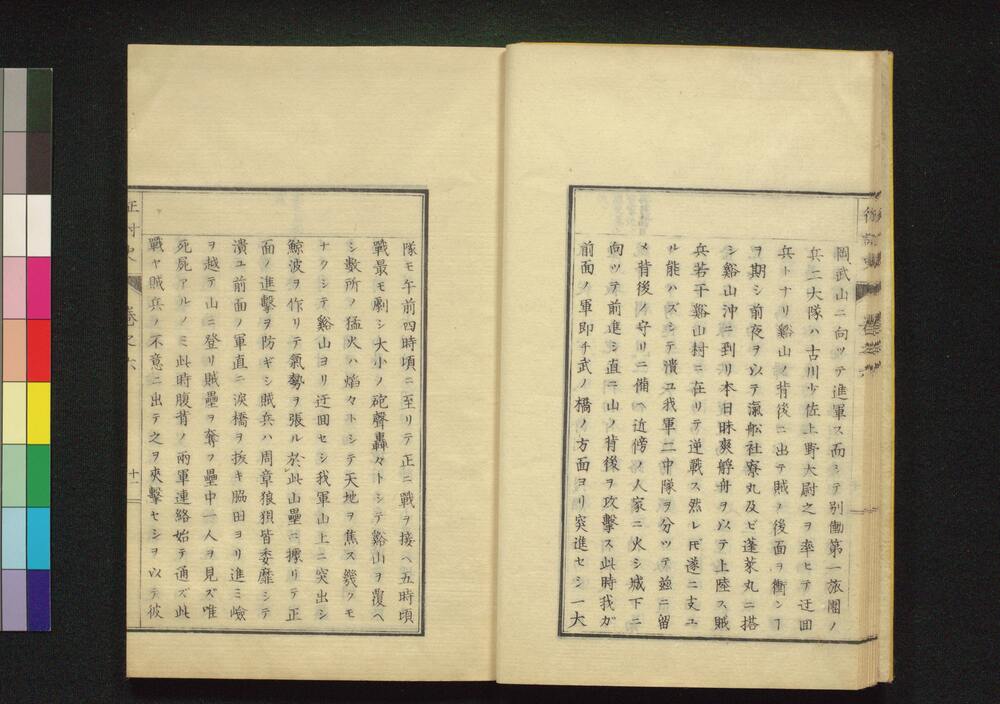 岡武山ニ向ッテ進軍ス而シテ別働第一旅團ノ
兵二大隊ハ古川少佐上野大尉之ヲ率ヒテ迂回
兵トナリ谿山ノ背後ニ出テ賊ノ後面ヲ衝ンヿ
ヲ期シ前夜ヲ以テ滊船社寮丸及ビ蓬萊丸ニ搭
シ谿山沖ニ到リ本日昧爽艀舟ヲ以テ上陸ス賊
兵若干谿山村ニ在リテ逆戰ス然レ𪜈遂ニ支ユ
ル能ハズシテ潰ユ我軍二中隊ヲ分ッテ玆ニ留
メ背後ノ守リニ備ヘ近傍ノ人家ニ火シ城下ニ
向ッテ前進シ直ニ山ノ背後ヲ攻擊ス此時我ガ
前面ノ軍即チ武ノ橋ノ方面ヨリ突進セシ一大
隊モ午前四時頃ニ至リテ正ニ戰ヲ接ヘ五時頃
戰最モ劇シ大小ノ砲聲轟々トシテ谿山ヲ覆ヘ
シ數所ノ猛火ハ焰々トシテ天地ヲ焦ス幾クモ
ナクシテ谿山ヨリ迂回セシ我軍山上ニ突出シ
鯨波ヲ作リテ氣勢ヲ張ル於此山壘ニ據リテ正
面ノ進擊ヲ防ギシ賊兵ハ周章狼狽皆委靡シテ
潰ユ前面ノ軍直ニ涙橋ヲ拔キ脇田ヨリ進ミ嶮
ヲ越テ山ニ登リ賊壘ヲ奪フ壘中一人ヲ見ズ唯
死屍アルノミ此時腹背ノ兩軍連絡始テ通ズ此
戰ヤ賊兵ノ不意ニ出テ之ヲ夾擊セシヲ以テ彼
征討史
卷之六
十一